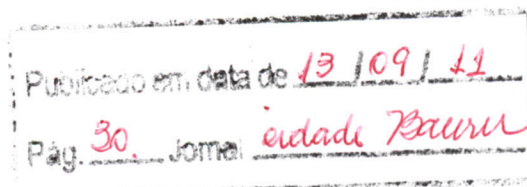 Publicado em data de 13 / 09 / 11
Pág. 30. Jornal cidade Bauru